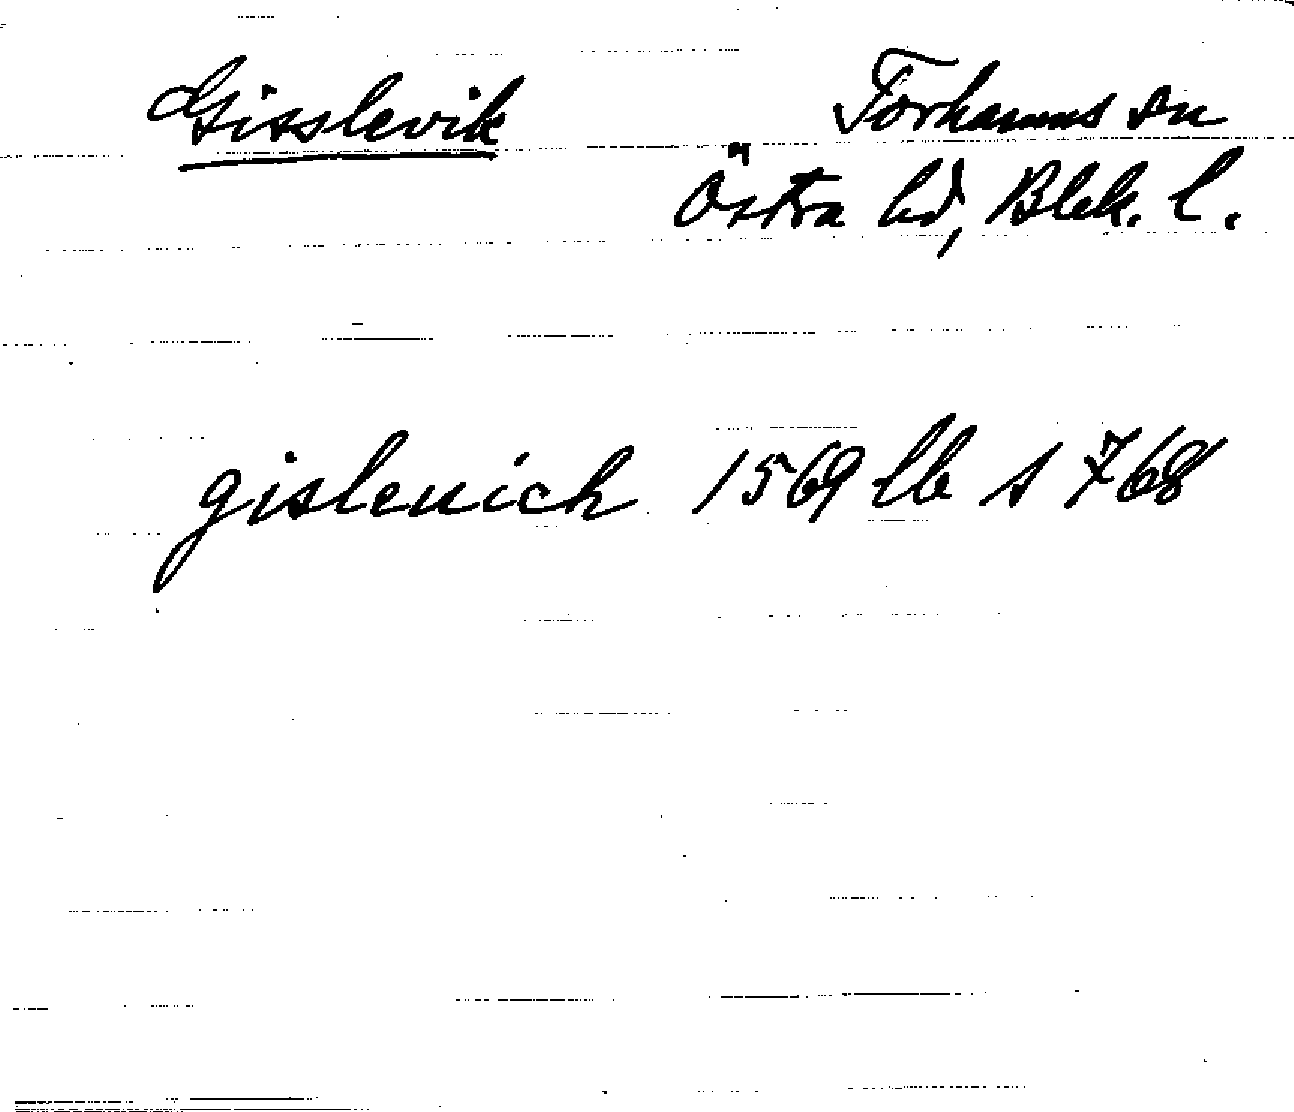 Gisslevik
Torhamns sn
Östra hd, Blek. l.
gisleuich 1569 lb s 768